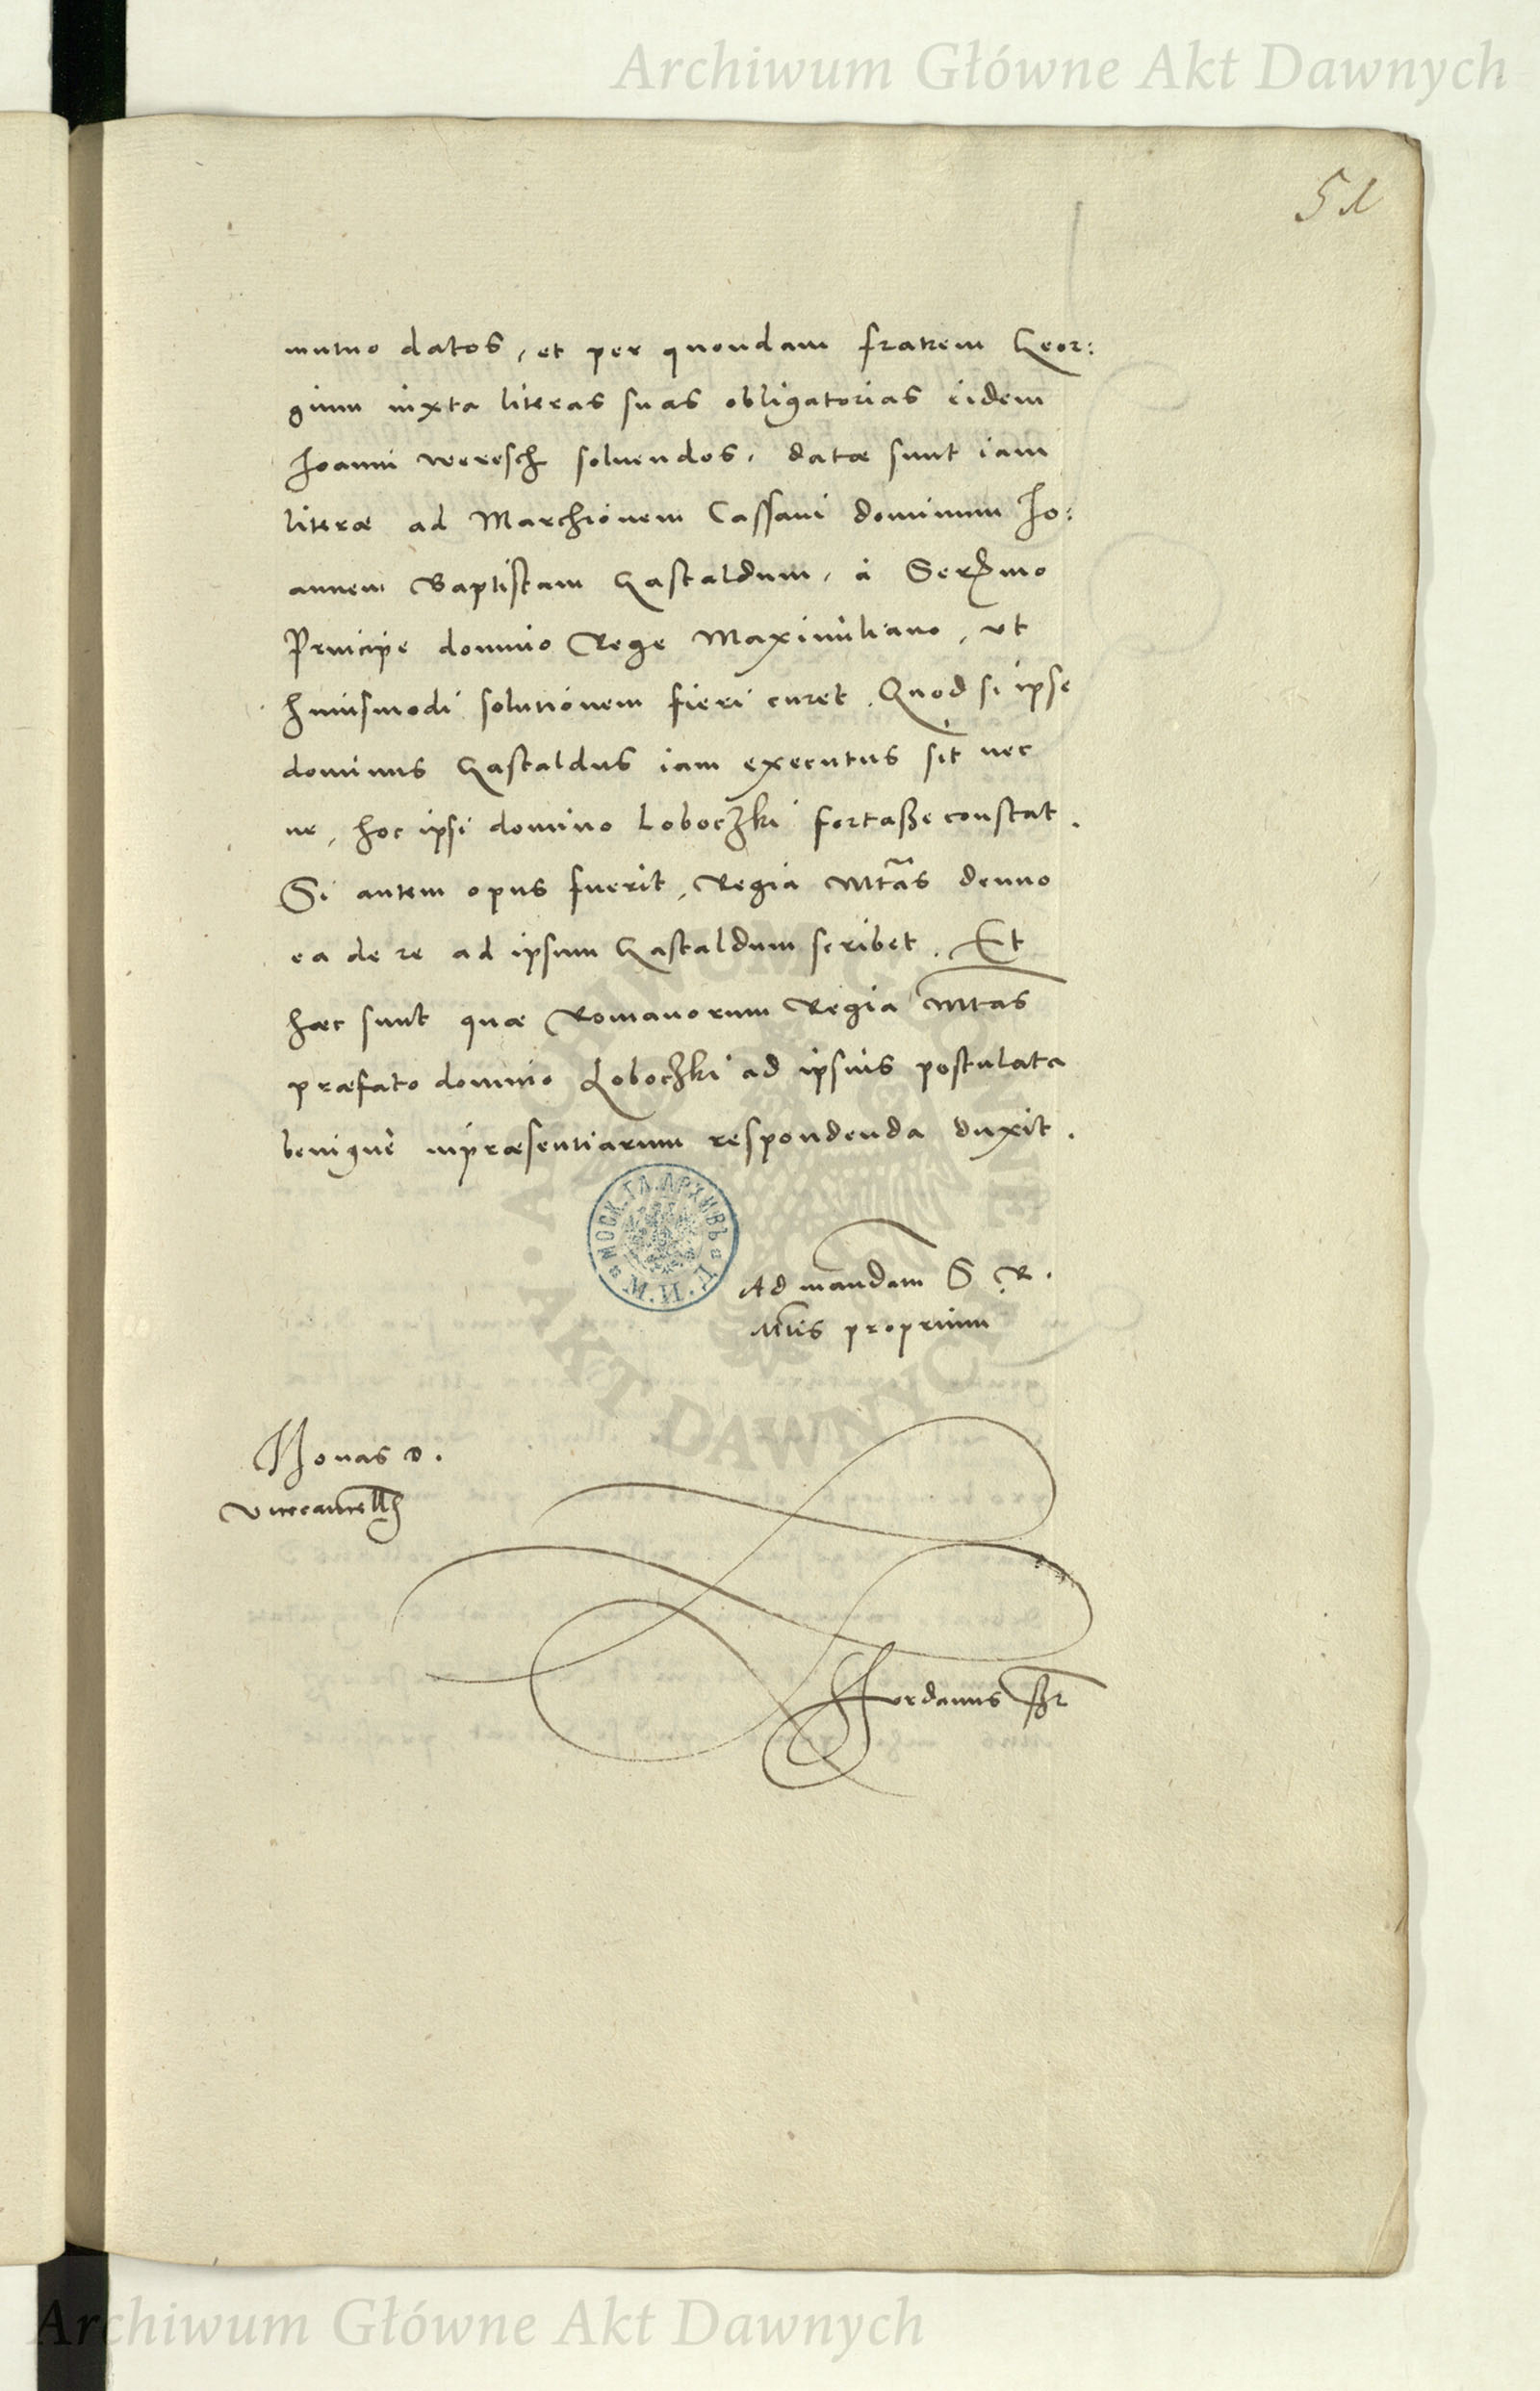 Archiwum Główne Akt Dawnych
51
mutuo datos, et per quondam fratrem Geor:
gium iuxta literas suas obligatorias eidem
Joanni Weresch soluendos. datæ sunt iam
literæ ad Marchionem Cassani dominum Jo:
annem Baptistam Castaldum, à Sermo
Principe domino Rege Maximiliano, vt
huiusmodi solutionem fieri curet. Quod si ipse
dominus Castaldus iam executus sit nec
ne, hoc ipsi domino Loboczki fortaße constat.
Si autem opus fuerit, Regia Mtas denuo
ea de re ad ipsum Castaldum scribet. Et
hæc sunt quæ Romanorum Regia Mtas
præfato domino Loboczki ad ipsius postulata
benignè inpræsentiarum respondenda duxit.
МОСК. ГЛ. АРХИВЪ М. И. Д.
ARCHIWUM GŁÓWNE AKT DAWNYCH
Ad mandatum S. R.
Mtis proprium
Jonas D.
Vicecancell
Jordanus
Archiwum Główne Akt Dawnych